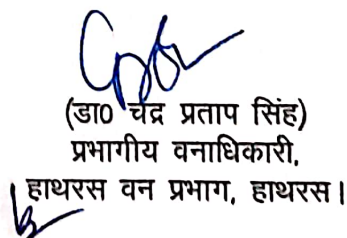 (डा0 चंद्र प्रताप सिंह)
प्रभागीय वनाधिकारी,
हाथरस वन प्रभाग, हाथरस।